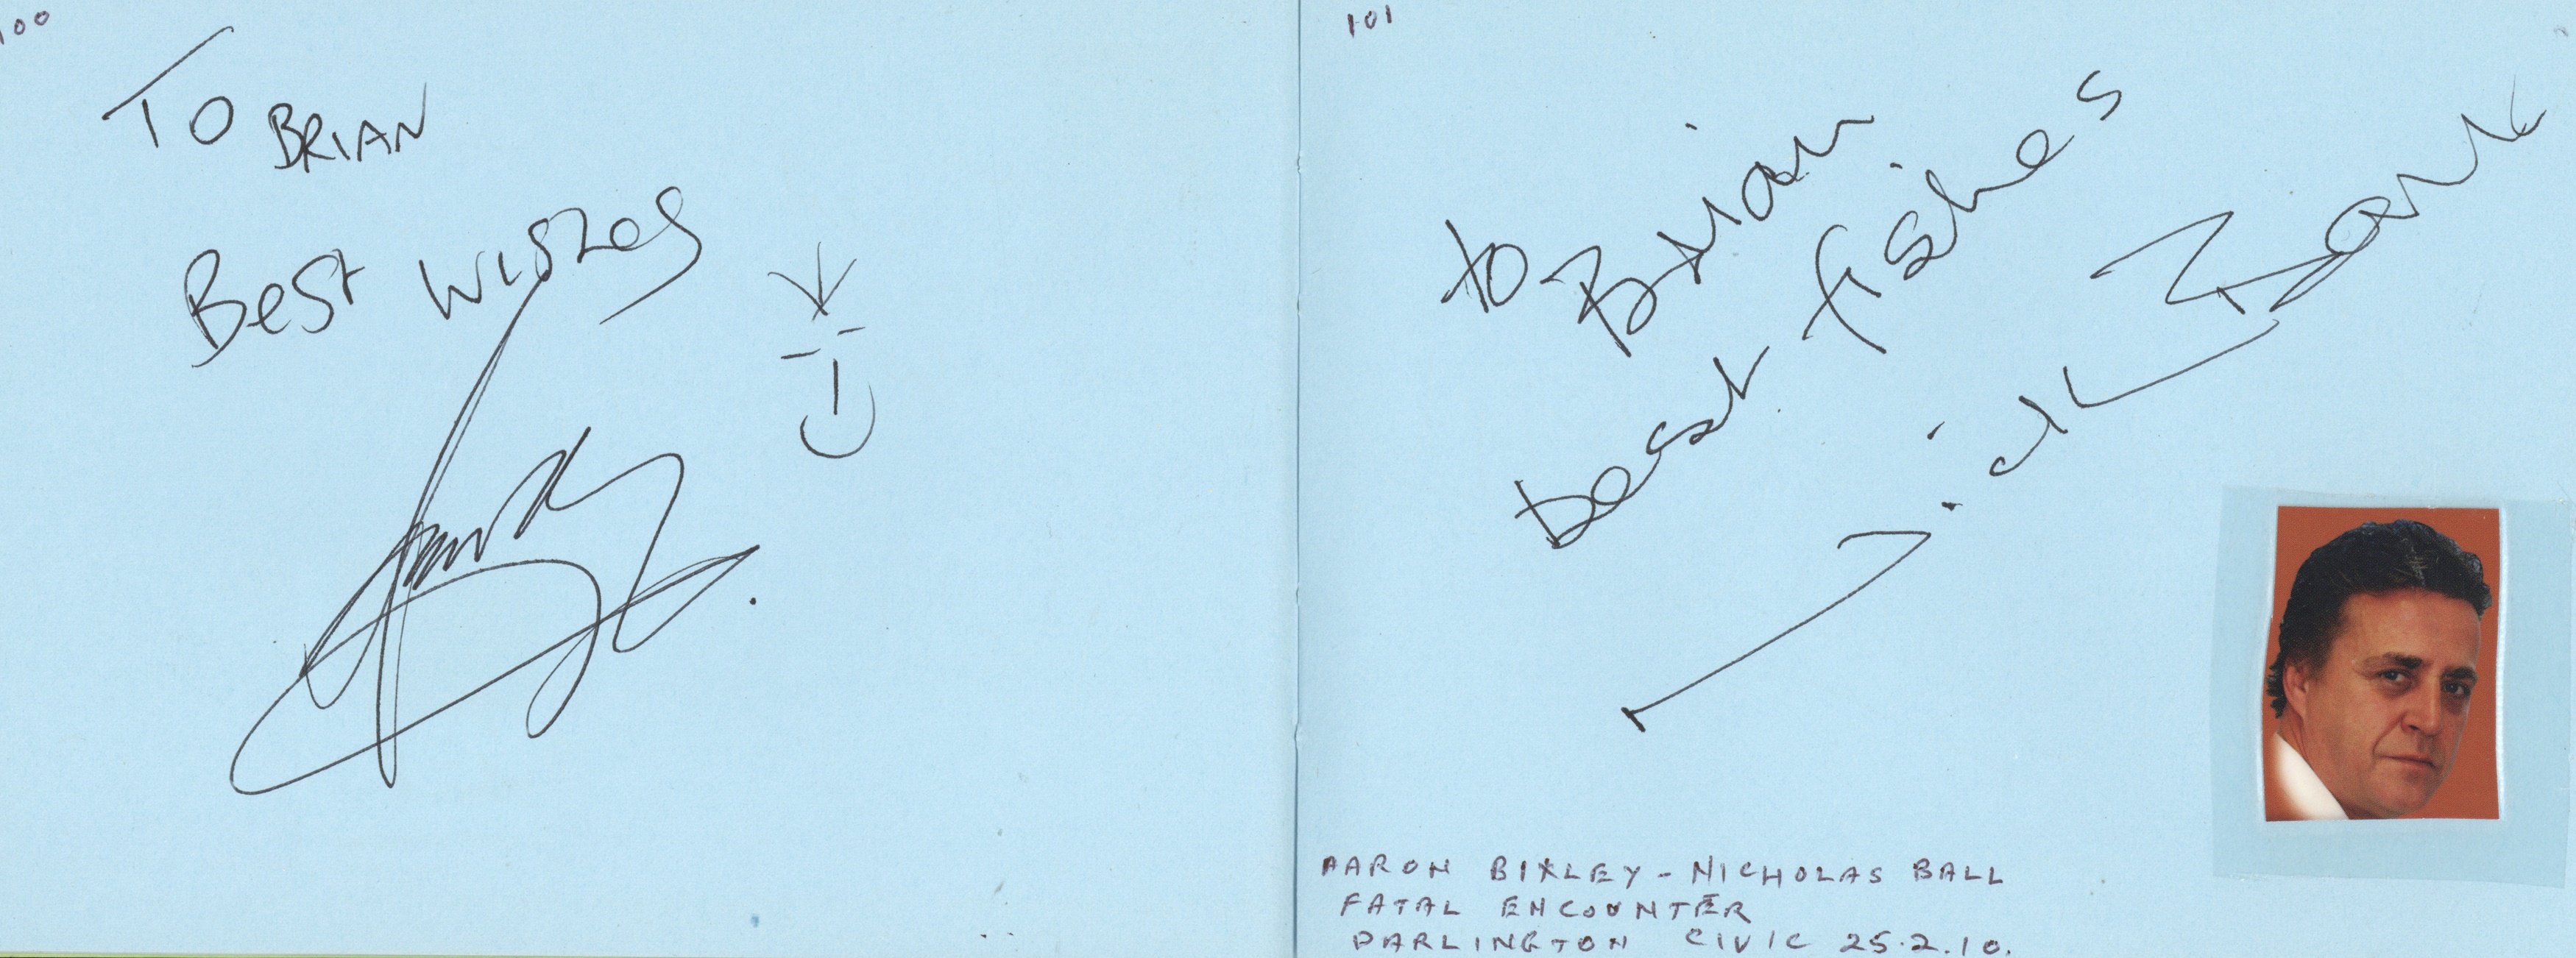 100
TO BRIAN
Best Wishes
101
to Brian
best fishes
Nick
AARON BIXLEY - NICHOLAS BALL
FATAL ENCOUNTER
DARLINGTON CIVIC 25.2.10.